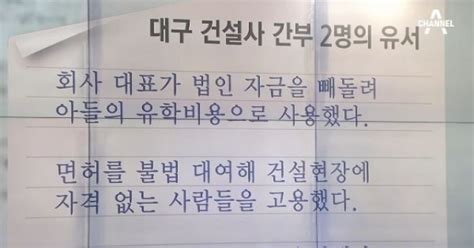 CHANNEL A
대구 건설사 간부 2명의 유서
회사 대표가 법인 자금을 빼돌려
아들의 유학비용으로 사용했다.
면허를 불법 대여해 건설현장에
자격 없는 사람들을 고용했다.